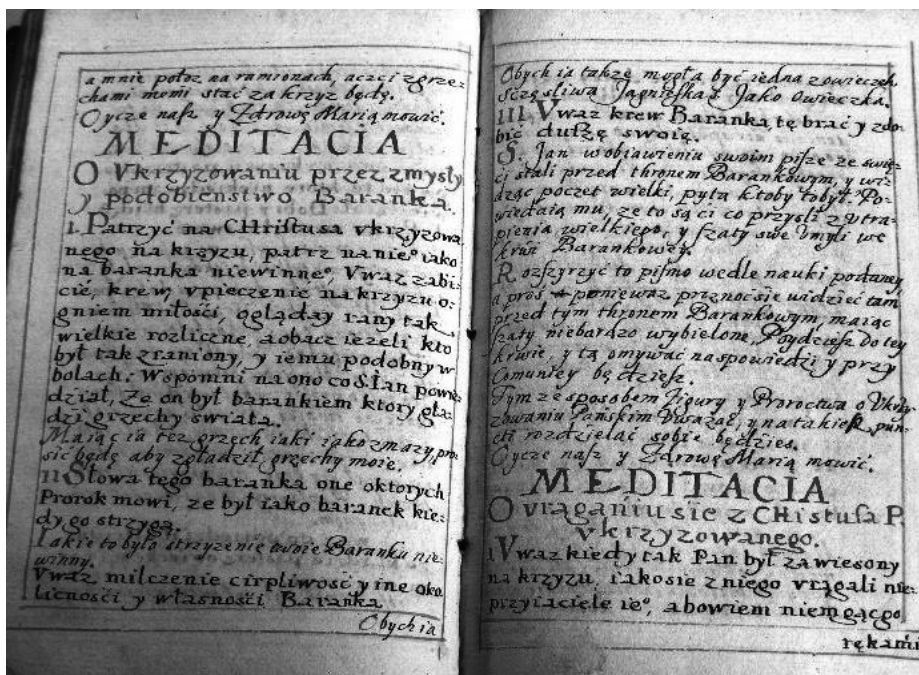 a mnie połoz na ramionach, aczci zgrze-
chami memi stać za krzyz będę.
Oycze nasz y Zdrowę Marią mowić.
MEDITACIA
O Vkrzyzowaniu przez zmysły
y podobienstwo Baranka.
I. Patrzyć na CHristusa vkrzyzowa
nego na krzyzu, patrz na nieº iako
na baranka niewinneº, Vwaz zabi-
cié, krew, vpieczenie na krzyzu o-
gniem miłości, ogląday rany tak
wielkie rozliczne, a obacz iezeli kto
był tak zraniony, y iemu podobny w
bolach: Wspomni na ono co S. Ian powie
dział, Ze on był barankiem ktory gła-
dzi grzechy swiata.
Maiąc ia tez grzech iaki iako zmazy, pro-
sic będę aby zgładził grzechy moie.
II Słowa tego baranka one oktorych
Prorok mowi, ze był iako baranek kie-
dy go strzygą.
Iakie to było strzyzenie twoie Baranku nie-
winny.
Vwaz milczenie cirpliwość y ine oko
licności y własności Baranka
Obych ia
Obych ia takze mogła być iedna z owieczek,
sczęsliwa Jagnieska Jako Owieczka.
III. Vwaz krew Baranka, tę brać y zdo-
bić duszę swoię.
S. Jan w obiawieniu swoim pisze ze swię-
ci stali przed thronem Barankowym, y wi-
dząc poczet wielki, pyta ktoby to był. Po-
wiedaią mu, ze to są ci co przysli z vtra-
pienia wielkiego, y szaty swe vmyli we
krwi Barankowey.
Rozszyrzyć to pismo wedle nauki podaney
a pros poniewaz prznocsie widzieć tam
przed tym thronem Barankowym, maiąc
szaty niebardzo wybielone, Poydziesz do tey
krwie, y tą omywać na spowiedzi y przy
Comuniey będziesz.
Tym ze sposobem Figury y Proroctwa o Vkrzy
zowaniu Pańskim vwazać, y na takiesz pun-
cti rozdzielać sobie będzies.
Oycze nasz y Zdrowę Marią mowić.
MEDITACIA
O vrąganiu sie z CHistusa P.
vkrzyzowanego.
I. Vwaz kiedy tak Pan był zawiesony
na krzyzu, iako sie z niego vrągali nie-
przyiaciele ieº, abowiem niemgącgo
rękami